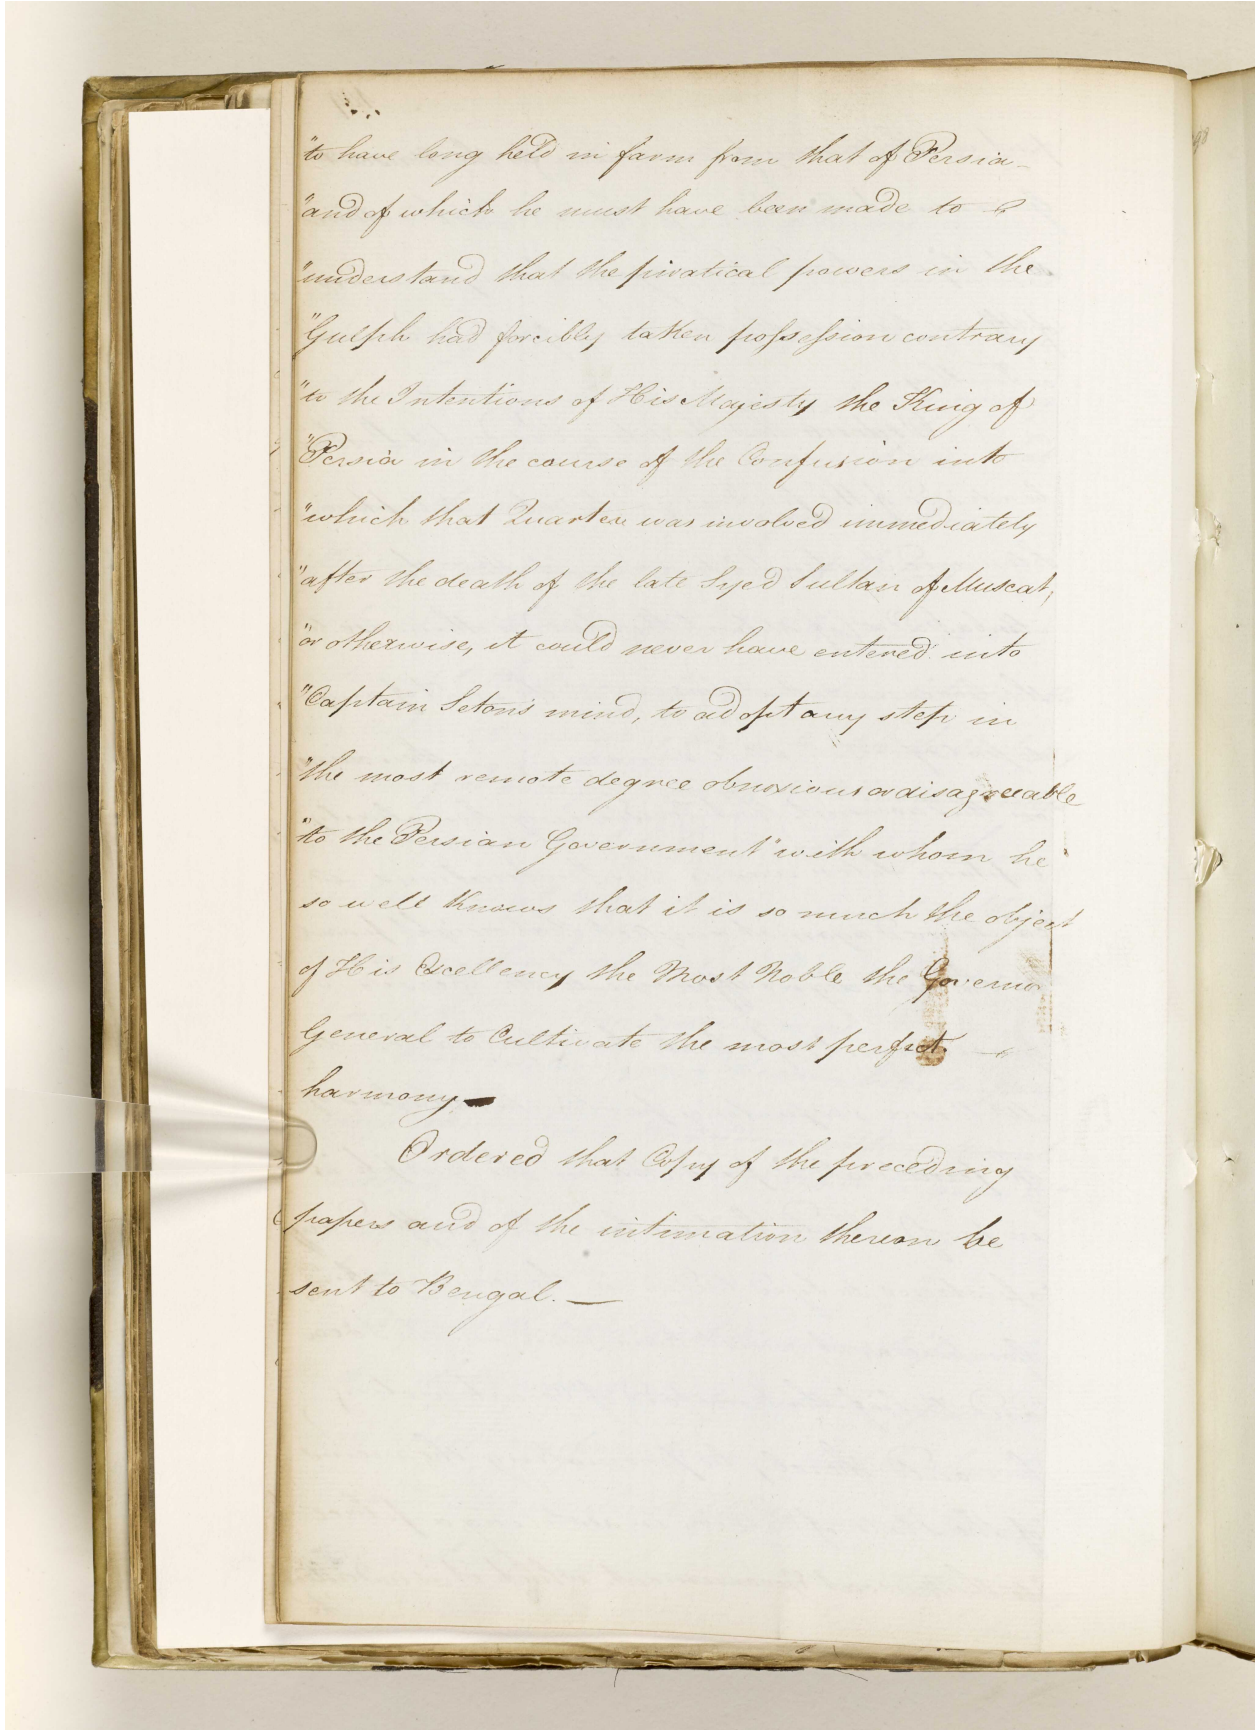 "to have long held in farm from that of Persia
"and of which he must have been made to
"understand that the piratical powers in the
"Gulph had forcibly taken possession contrary
"to the Intentions of His Majesty the King of
"Persia in the course of the Confusion into
"which that Quarter was involved immediately
"after the death of the late Syed Sultan of Muscat,
"or otherwise, it could never have entered into
"Captain Seton's mind, to adopt any step in
"the most remote degree obnoxious or disagreeable
"to the Persian Government" with whom he
so well knows that it is so much the object
of His Excellency the Most Noble the Governor
General to Cultivate the most perfect
harmony —
Ordered that Copy of the preceding
papers and of the intimation thereon be
sent to Bengal. —